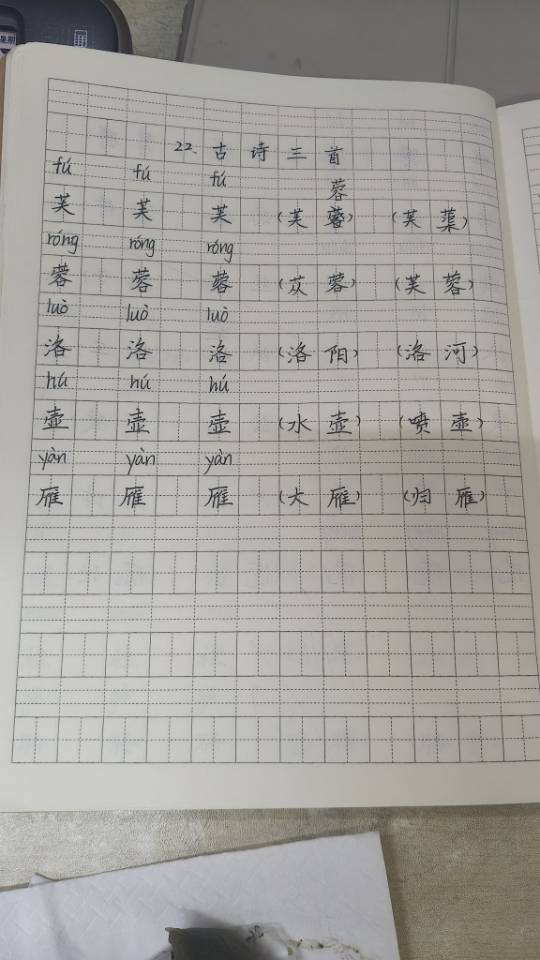 22. 古诗三首
fú fú fú
蓉
芙 芙 芙 (芙蓉) (芙蕖)
róng róng róng
蓉 蓉 蓉 (苁蓉) (芙蓉)
luò luò luò
洛 洛 洛 (洛阳) (洛河)
hú hú hú
壶 壶 壶 (水壶) (喷壶)
yàn yàn yàn
雁 雁 雁 (大雁) (归雁)